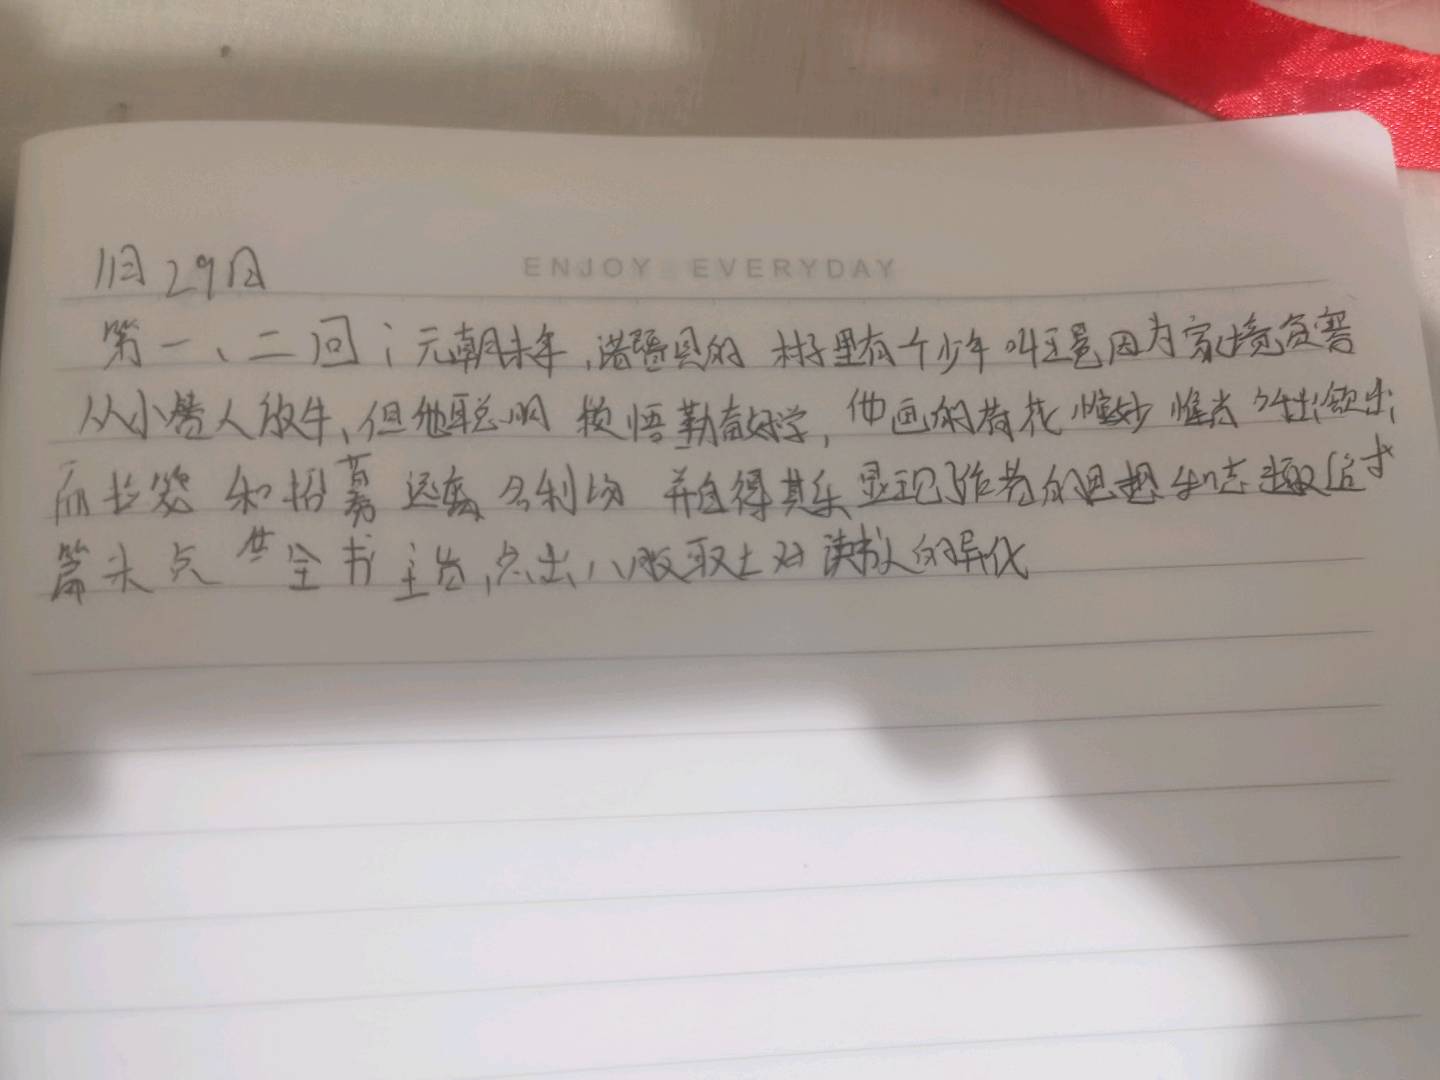 ENJOY EVERYDAY
11月29日
第一、二回；元朝末年，诸暨县的村子里有个少年叫王冕因为家境贫寒
从小替人放牛，但他聪明颖悟勤奋好学，他画的荷花惟妙惟肖
和 远离名利场 并自得其乐 显现了作者的思想和志趣追求
篇头点 全书主旨，点出八股取士对读书人的异化